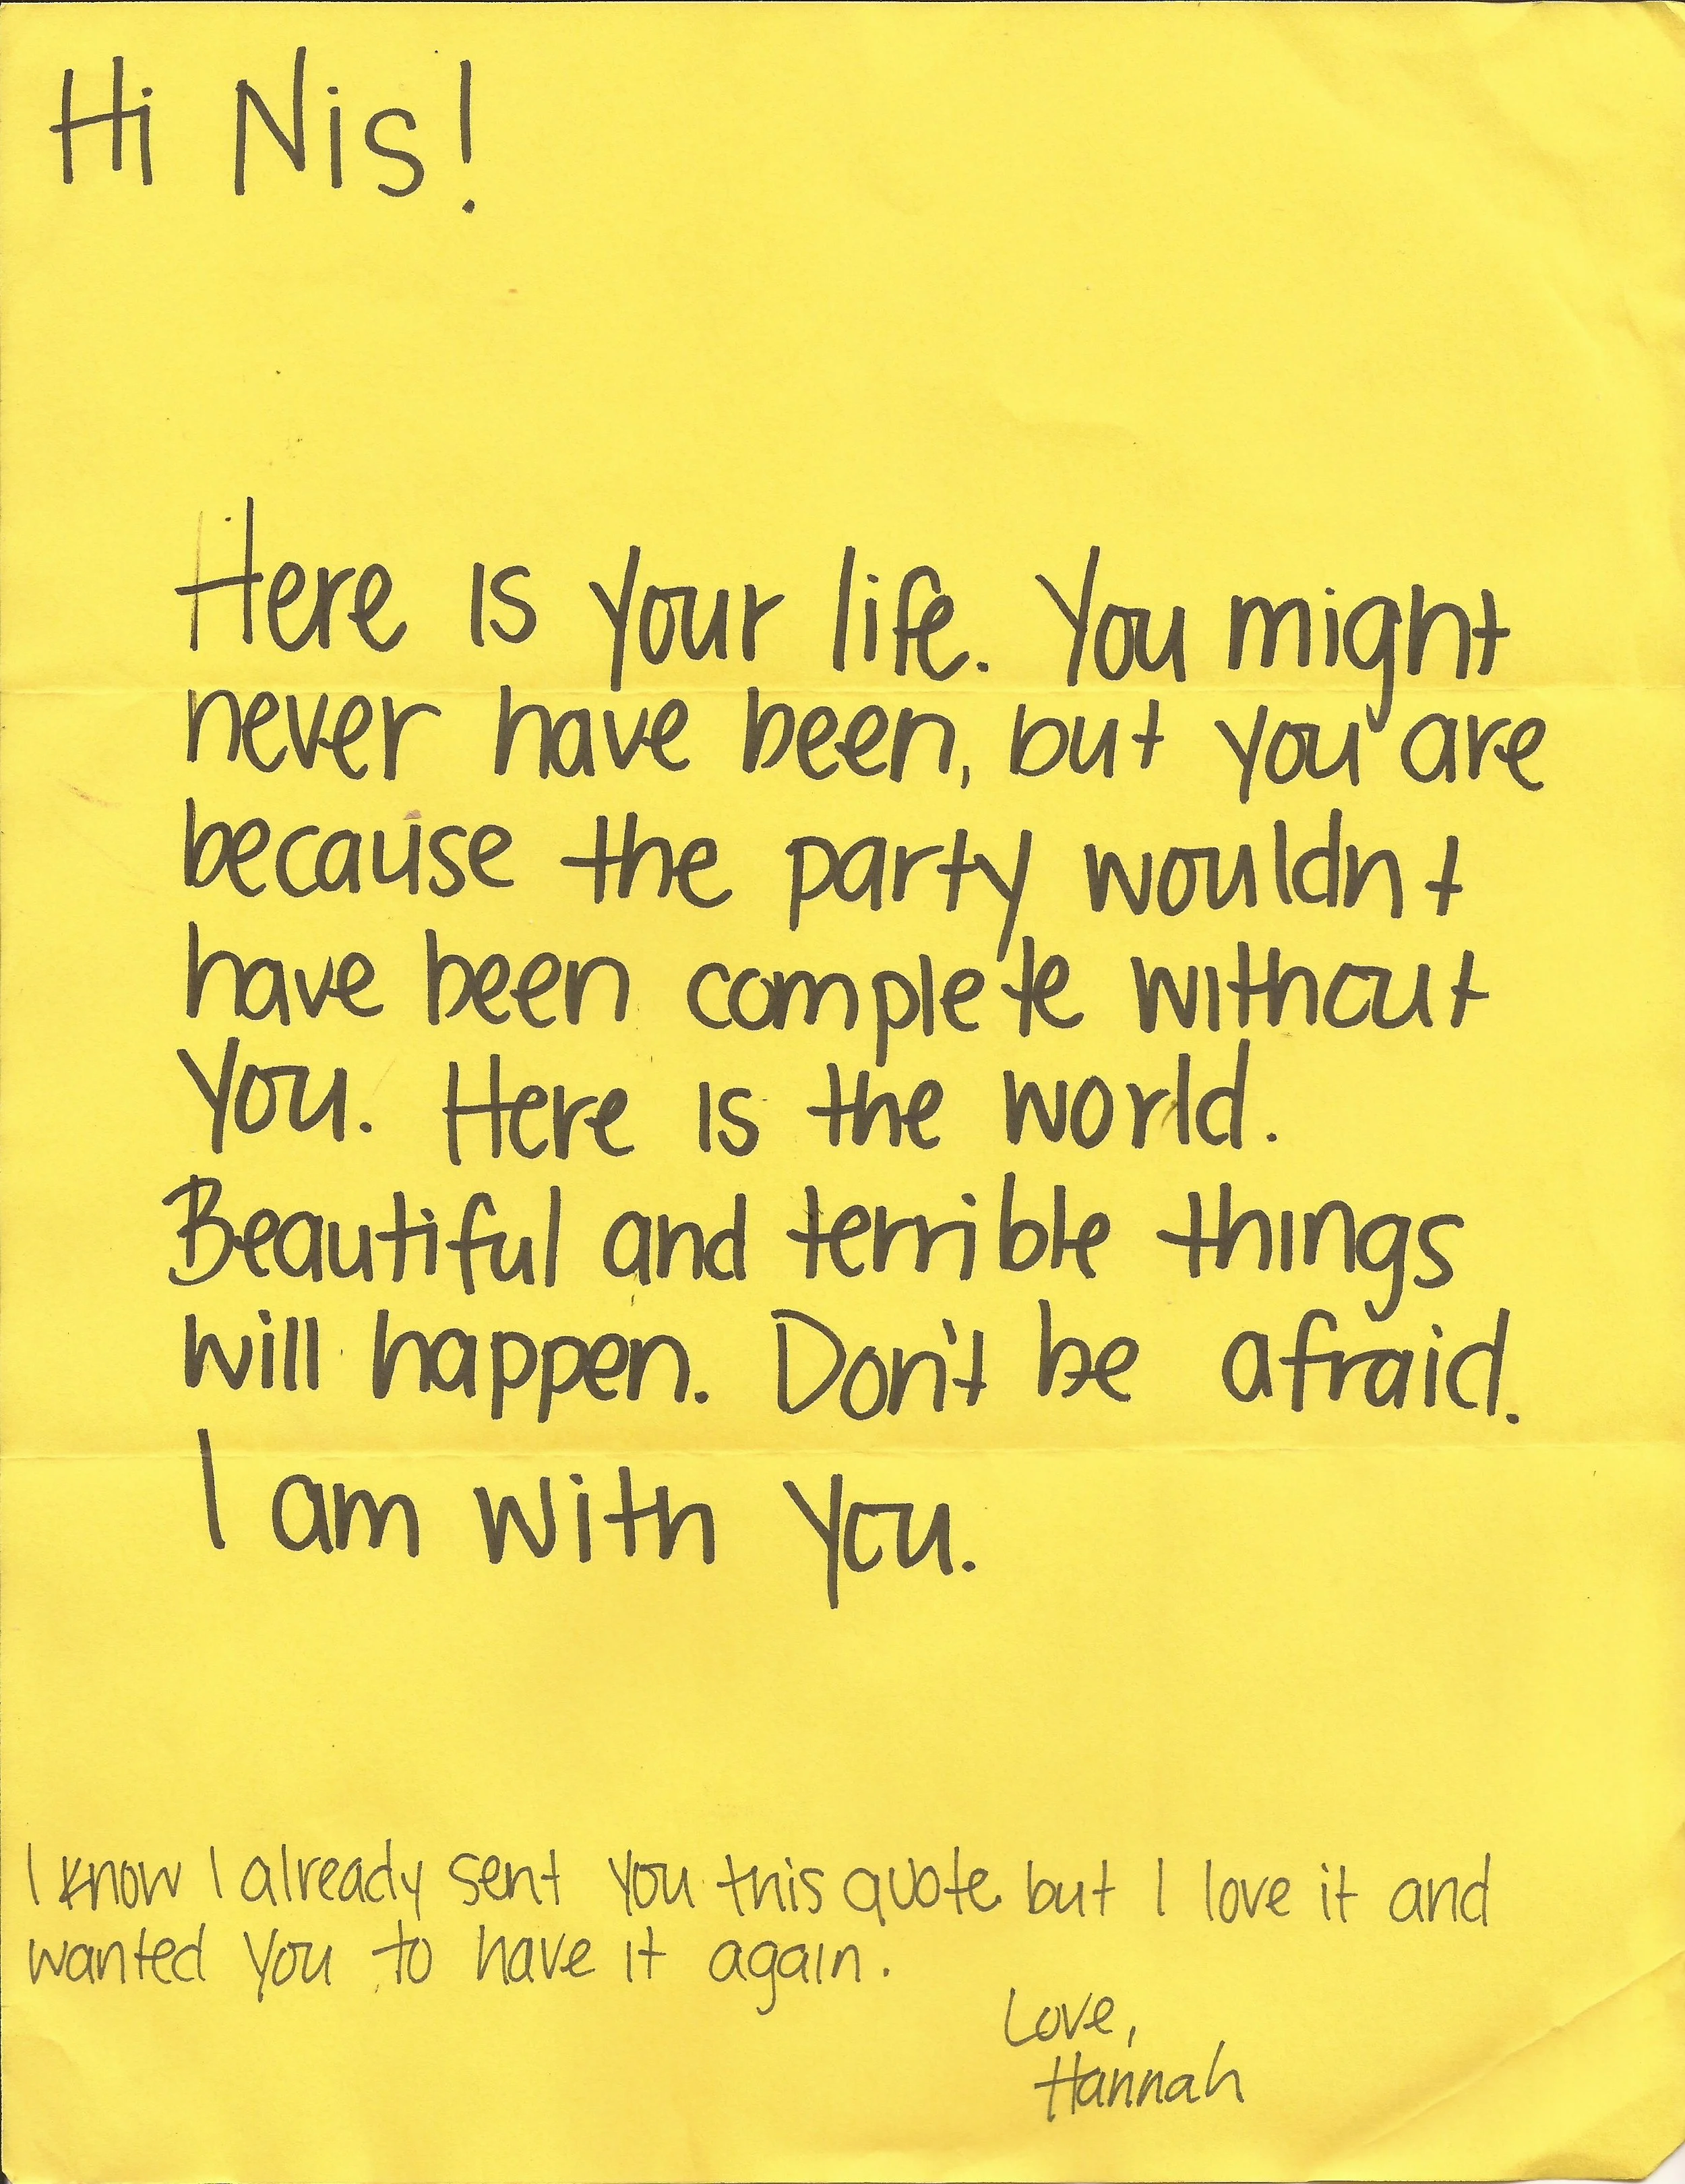 Hi Nis!
Here is your life. You might
never have been, but you are
because the party wouldnt
have been complete without
you. Here is the world.
Beautiful and terrible things
will happen. Don't be afraid.
I am with you.
I know I already sent you this quote but I love it and
wanted you to have it again.
Love,
Hannah